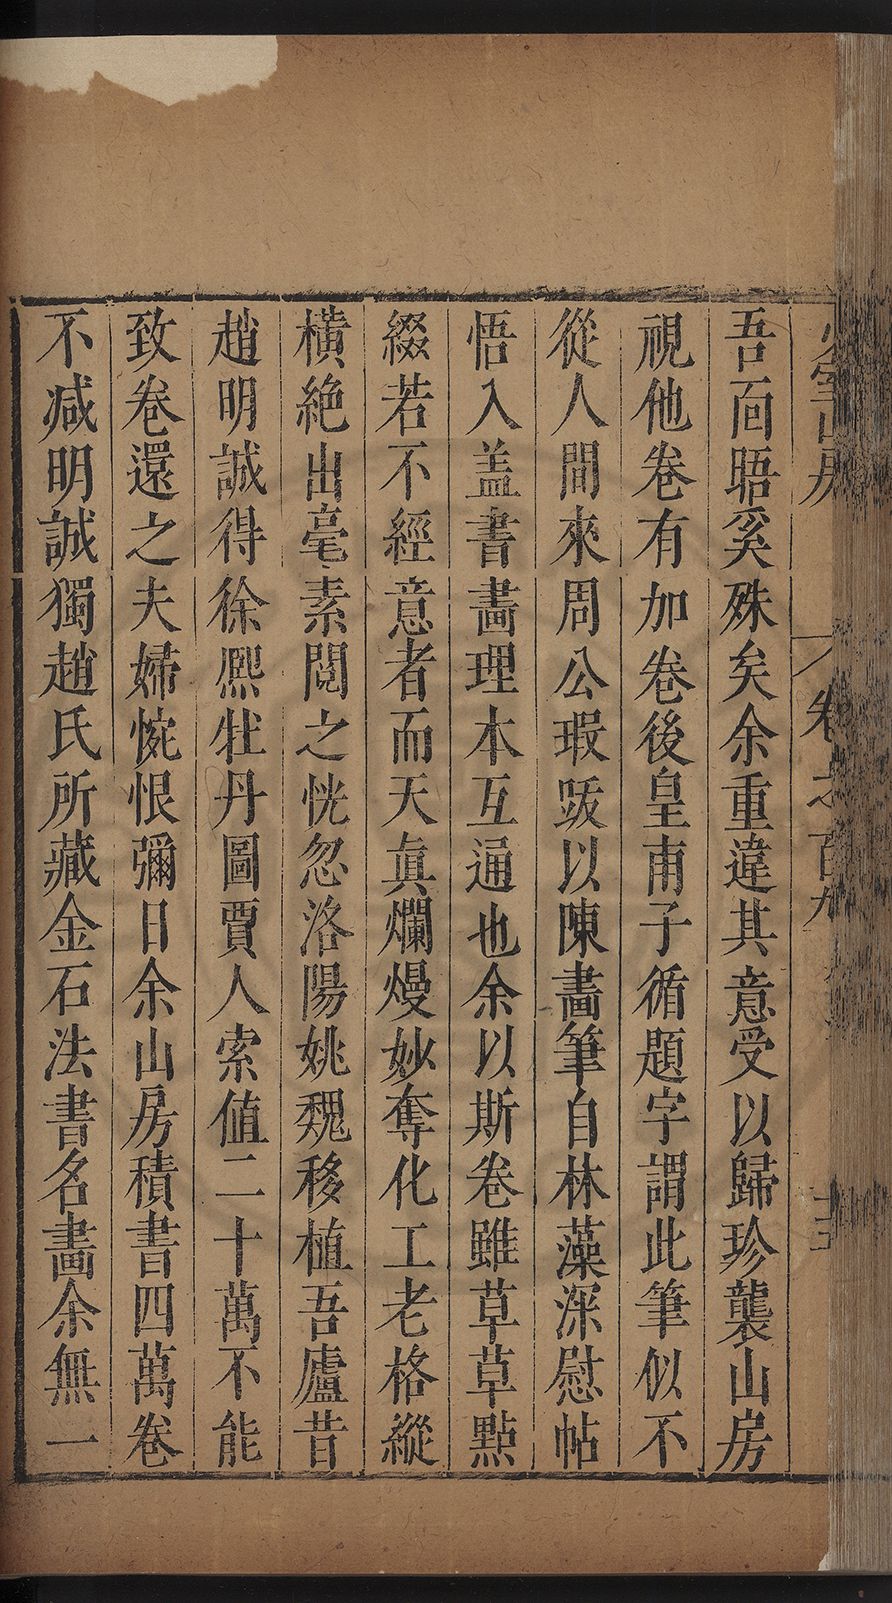 少室山房 卷之百九
吾面晤奚殊矣余重違其意受以歸珍襲山房
視他卷有加卷後皇甫子循題字謂此筆似不
從人間來周公瑕跋以陳畫筆自林藻深慰帖
悟入盖書畫理本互通也余以斯卷雖草草點
綴若不經意者而天真爛熳妙奪化工老格縱
橫絶出毫素閱之恍忽洛陽姚魏移植吾廬昔
趙明誠得徐熈牡丹圖賈人索值二十萬不能
致卷還之夫婦惋恨彌日余山房積書四萬卷
不減明誠獨趙氏所藏金石法書名畫余無一